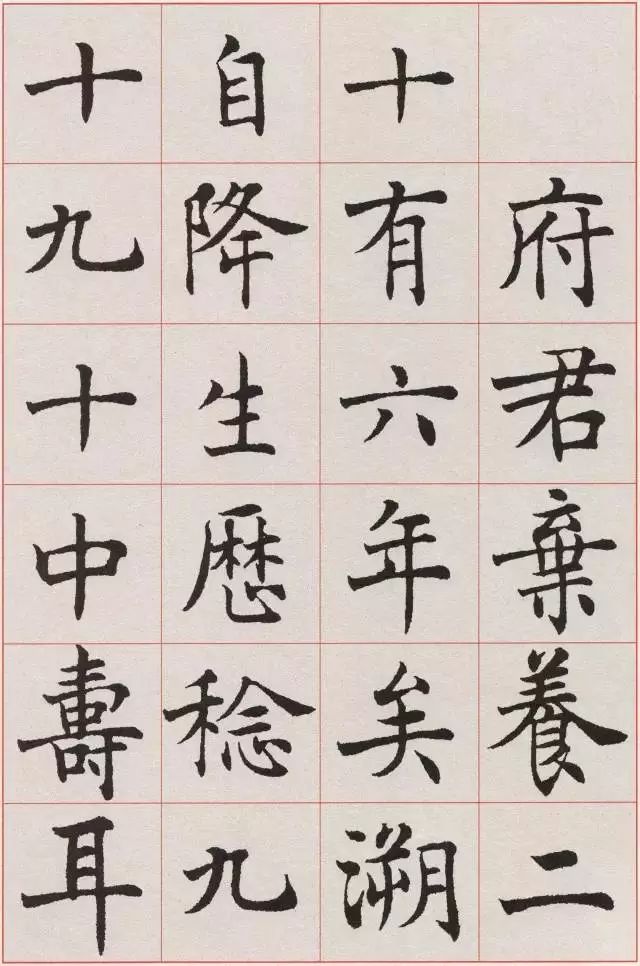 府君棄養二
十有六年矣溯
自降生歷稔九
十九十中壽耳